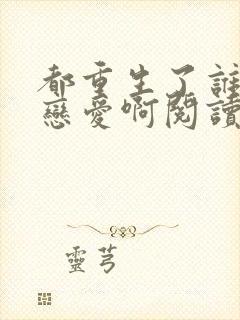 都重生了誰
戀愛啊閱讀
靈芎